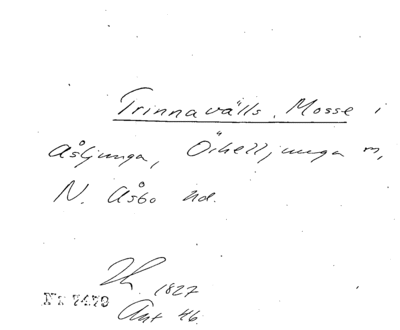 Trinnavälls Mosse i
Åsljunga, Örkelljunga m,
N. Åsbo hd.
1827
Nr 7479
Ant 46